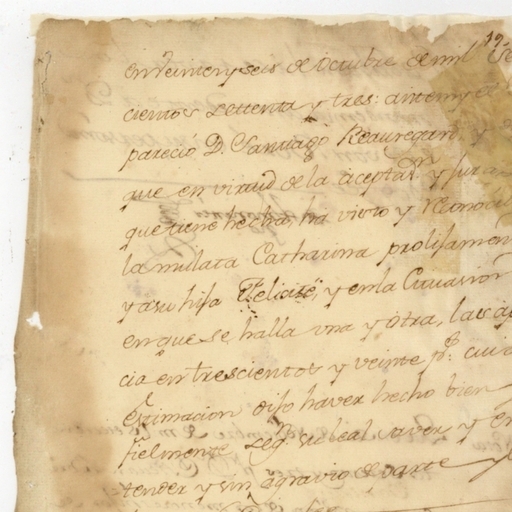 19
en Veinte y seis de octubre de mil Se
cientos settenta y tres: antemy el
pareció D. Santiago Beauregard, y
que en virtud de la aceptaon y Jura
que tiene hecha, ha visto y Reconoci
la mulata Catharina prolijamen
y a su hija Felicité, y en la Cituasion
en que se halla una y otra, las a
cia en trescientos y veinte ps. cuia
estimacion dijo haver hecho bien
fielmente segn. su leal saver, y en
tender y sin agravio de parte